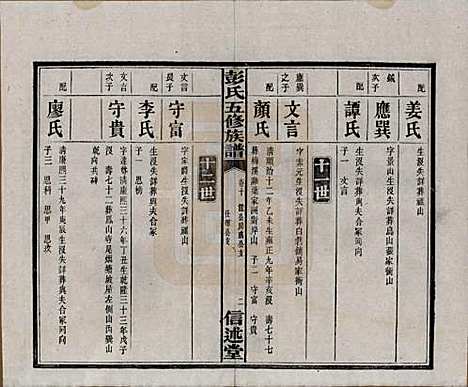 配
姜氏
生沒失詳葬與夫合冢
鉞次子
應巽
字景山生沒失詳葬烏山張家衝山
配
譚氏
生沒失詳葬與夫合冢同向
子一 文言
十一世
應巽之子
文言
字秉元生沒失詳葬白若鋪易家衝山
配
顏氏
清順治十二年乙未生雍正九年辛亥沒 壽七十七
子二 守富 守貴
彭氏五修族譜
卷十
二
信述堂
十二世
文言長子
守富
字宋爵生沒失詳葬
配
李氏
生沒失詳葬與夫合冢
子一 思榜
文言次子
守貴
清康熙三十六年丁丑生乾隆三十三年戊子
沒 壽七十二葬烏山寺烏煙塘坡岸子山內巽山
乾向共碑
配
廖氏
清康熙三十九年庚辰生沒失詳葬與夫合冢同向
子三 思科 思甲